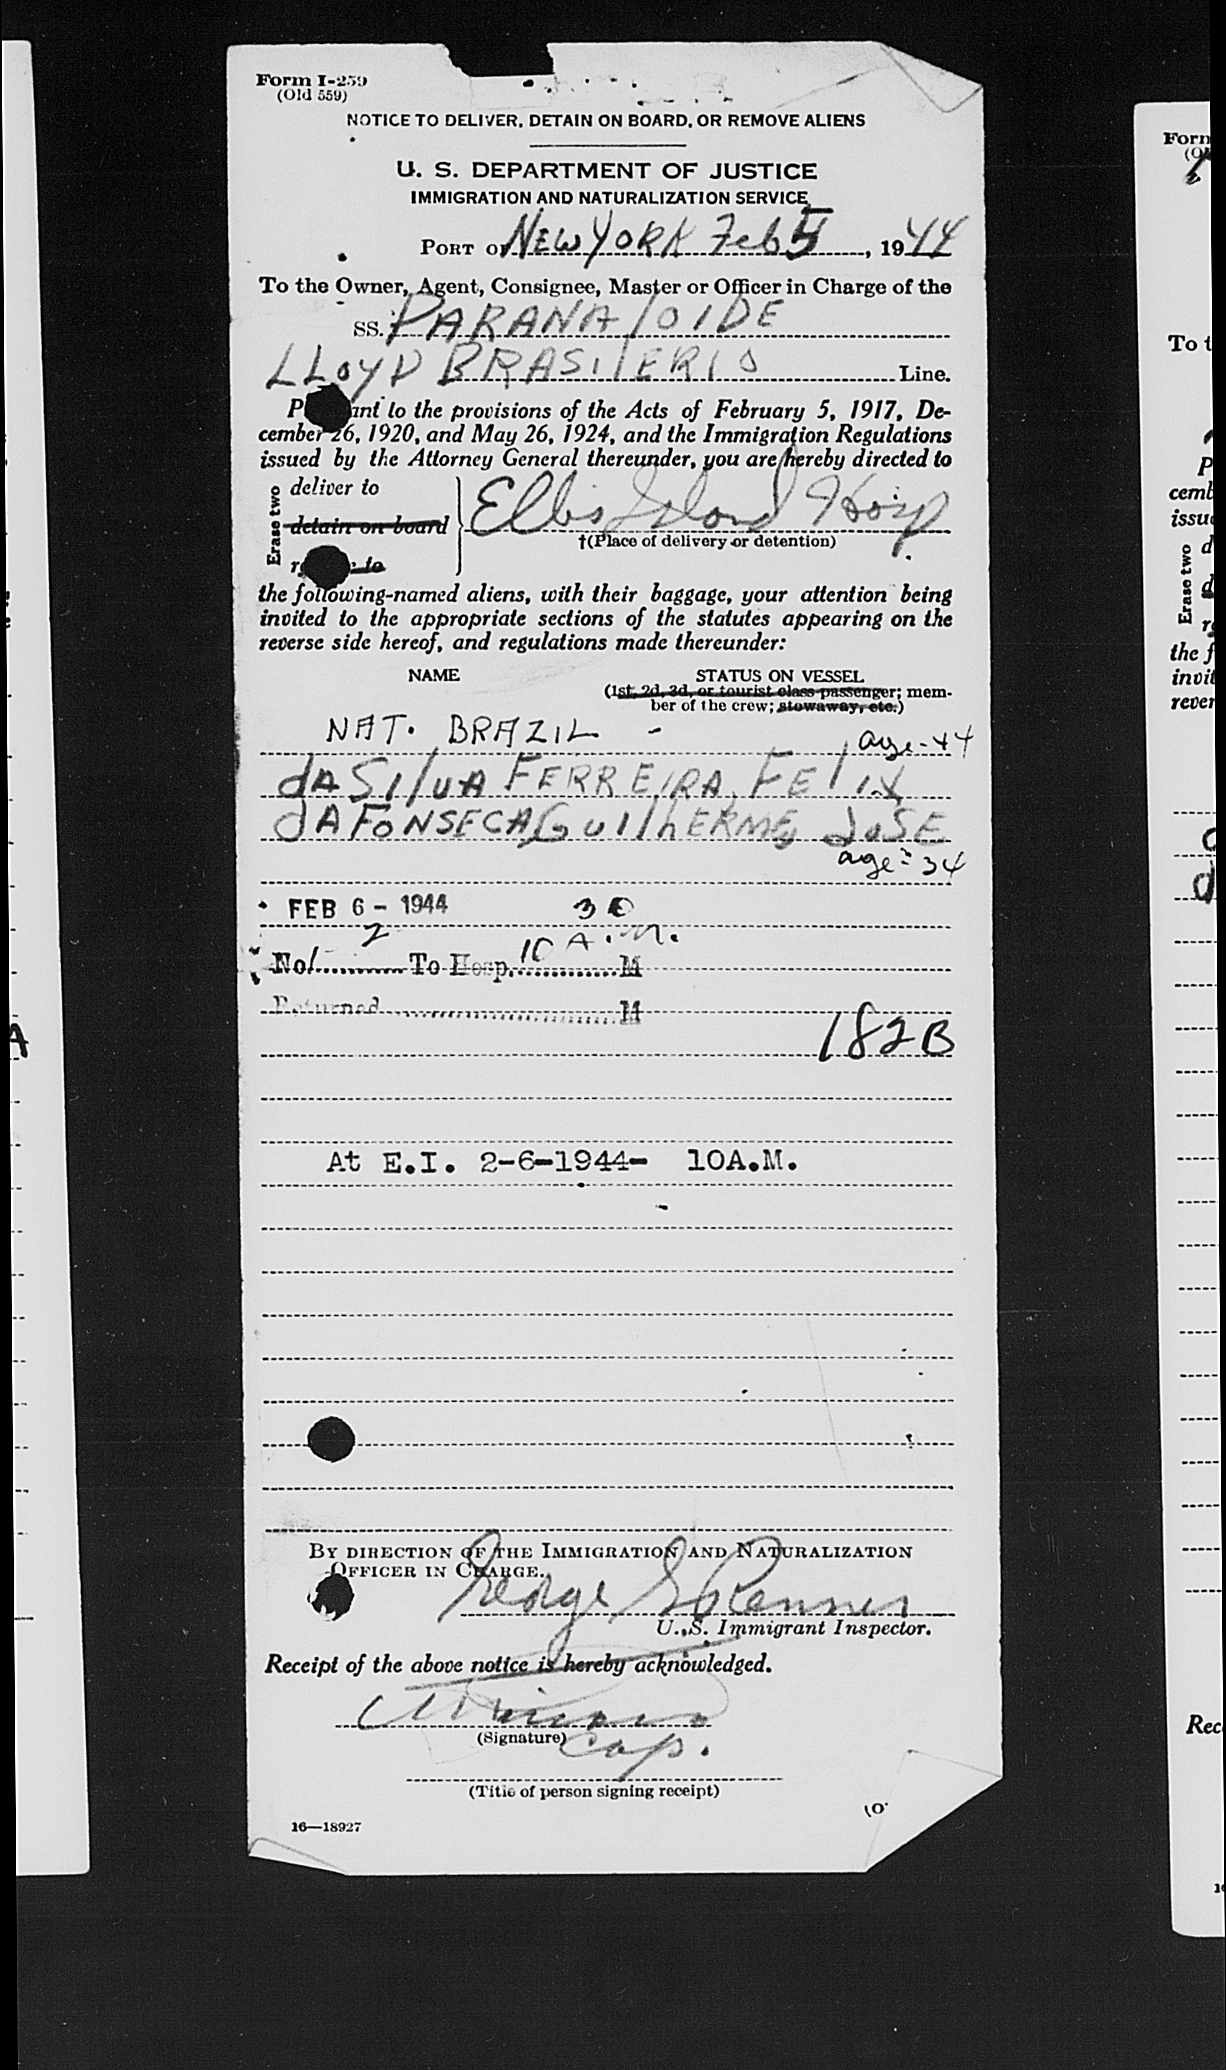 Form I-259
(Old 559)
NOTICE TO DELIVER, DETAIN ON BOARD, OR REMOVE ALIENS
U. S. DEPARTMENT OF JUSTICE
IMMIGRATION AND NATURALIZATION SERVICE
PORT OF NEW YORK Feb 5, 1944
To the Owner, Agent, Consignee, Master or Officer in Charge of the
SS. PARANALOIDE
LLOYD BRASILERIO Line.
ant to the provisions of the Acts of February 5, 1917, De-
cember 26, 1920, and May 26, 1924, and the Immigration Regulations
issued by the Attorney General thereunder, you are hereby directed to
Erase two
deliver to
detain on board
to
Ellis Island Hosp
†(Place of delivery or detention)
the following-named aliens, with their baggage, your attention being
invited to the appropriate sections of the statutes appearing on the
reverse side hereof, and regulations made thereunder:
NAME STATUS ON VESSEL
(1st, 2d, 3d, or tourist class passenger; mem-
ber of the crew; stowaway, etc.)
NAT. BRAZIL - age-44
dA SilvA FERREIRA, FEliX
dA FONSECA GuilhERME, JOSE
age - 34
FEB 6 - 1944
2 10 A.M.
No. To Hosp. M
Returned M
182B
At E.I. 2-6-1944- 10A.M.
BY DIRECTION OF THE IMMIGRATION AND NATURALIZATION
OFFICER IN CHARGE.
George Renner
U. S. Immigrant Inspector.
Receipt of the above notice is hereby acknowledged.
(Signature)
Cap.
(Title of person signing receipt)
16—18927
Form
To t
P
cemb
issu
Erase two
d
the f
invit
rever
Rec